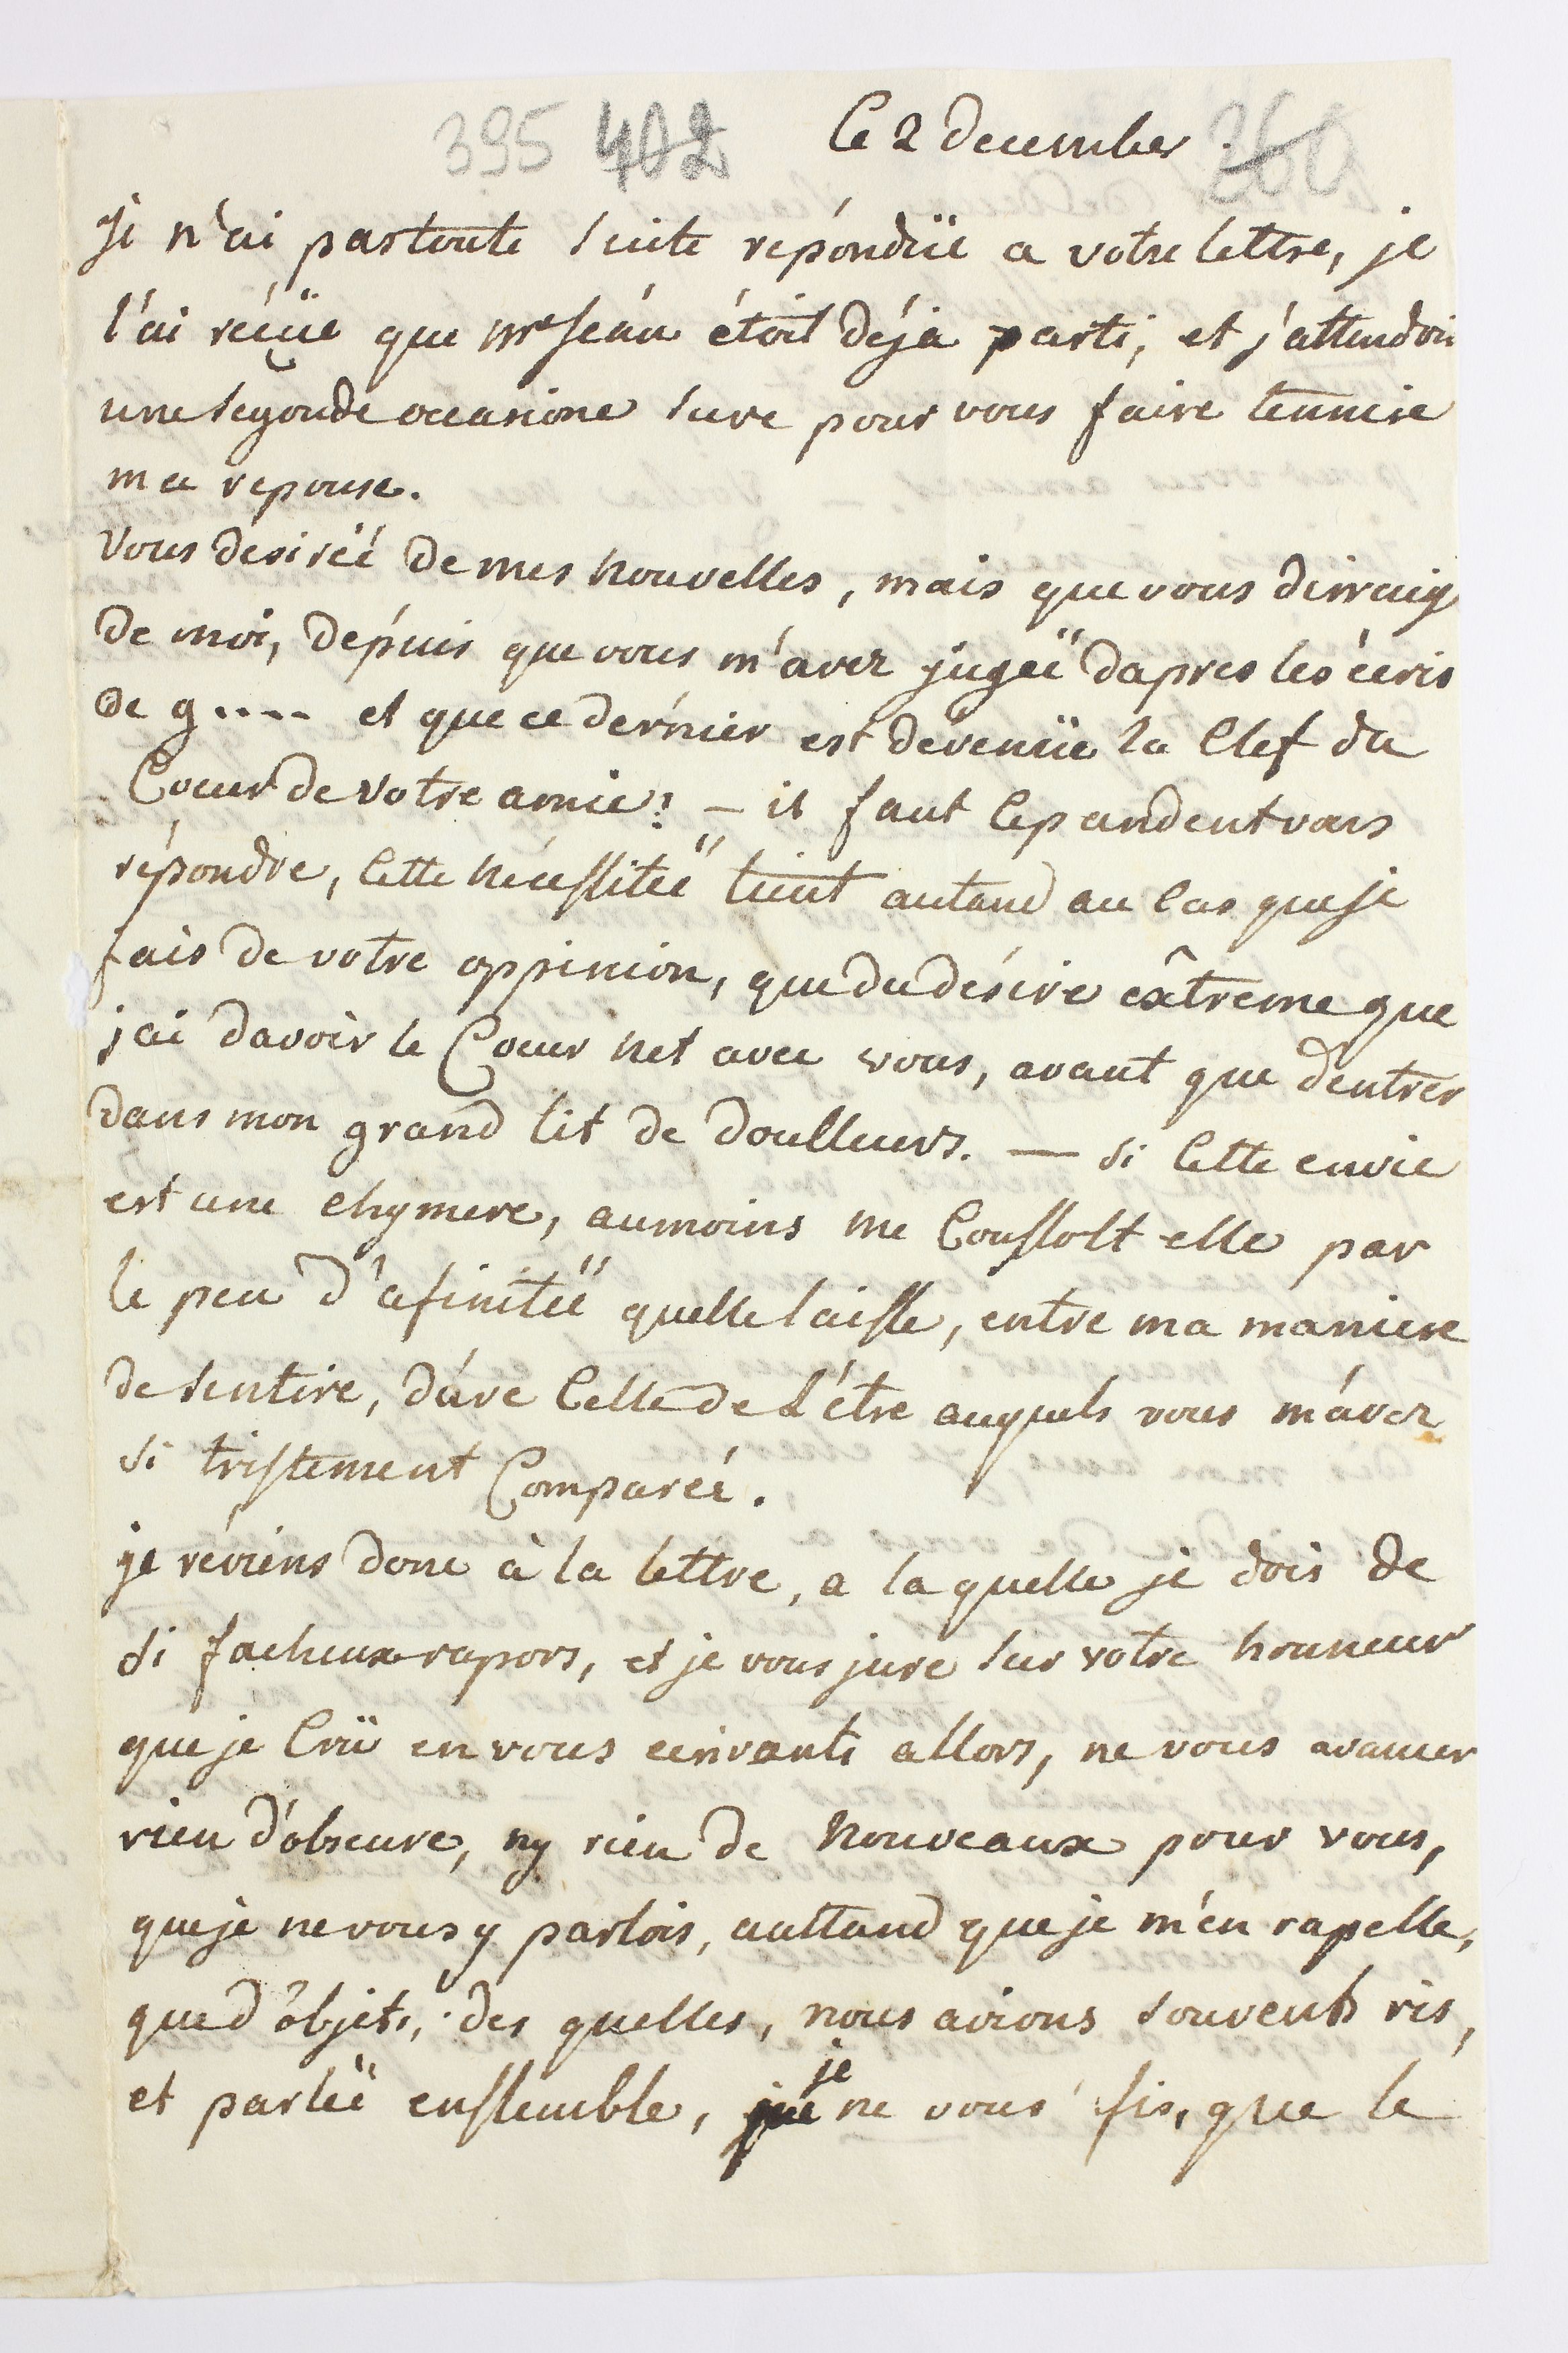 395 402 Ce 2 december 360
je n'ai pas toute suite repondüe a votre lettre, je
l'ai réçüe que Mr seau étoit déja parti, et j'attendoi
une segonde occasione sure pour vous faire tennire
ma reponse.
Vous desireé de mes nouvelles, mais que vous dirraig
de moi, dépuis que vous m'avez jugeë dapres les écris
de g.... et que ce dérnier est devenüe la Clef du
Coeur de votre amie! – il faut Cepandent vous
répondre, Cette nécessiteë tient autand au Cas que je
fais de votre oppinion, que du désire extrême que
j'ai davoir le Coeur net avec vous, avant que dentrer
dans mon grand lit de doulleurs. — si Cette envie
est une chymere, aumoins me Consolt elle par
le peu d'afiniteë quelle laisse, entre ma maniere
de sentire, dáve Celle de L'étre auquels vous m'ávez
si tristement Compareé.
je réviens donc à la lettre, a la quelle je dois de
si facheux rapors, et je vous jure sur votre honneur
que je Crü en vous ecrivants allors, ne vous avancer
rien d'obscure, ny rien de nouveaux pour vous,
que je ne vous y parlois, auttand que je m'en rapelle,
que d'objets, des quelles, nous avions souvents ris,
et parleë enssemble, je ne vous fis, que le